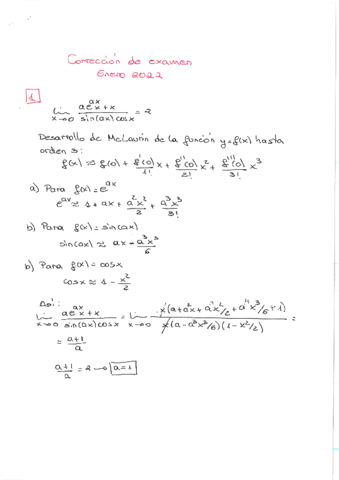 Corrección de examen
Enero 2022
1
lim x→0 (ae^{ax}+x)/(sin(ax)cosx) = 2
Desarrollo de McLaurin de la función y=f(x) hasta
orden 3:
f(x) ≈ f(0) + f'(0)/1! x + f''(0)/2! x² + f'''(0)/3! x³
a) Para f(x)=e^{ax}
e^{ax} ≈ 1 + ax + a²x²/2 + a³x³/3!
b) Para f(x)=sin(ax)
sin(ax) ≈ ax - a³x³/6
b) Para f(x)=cosx
cosx ≈ 1 - x²/2
Así:
lim x→0 (ae^{ax}+x)/(sin(ax)cosx) = lim x→0 x(a+a²x+a³x²/2+a⁴x³/6+1)/x(a-a³x³/6)(1-x²/2) =
= (a+1)/a
(a+1)/a = 2 → a=1